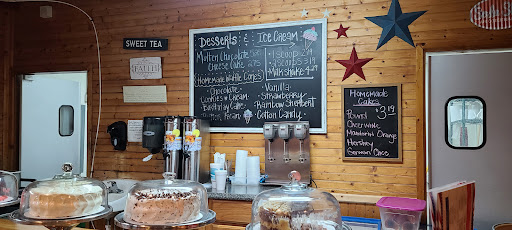 SWEET TEA
FALL
Desserts & Ice Cream
Molten Chocolate
Cheese Cake
1 Scoop
2 Scoops
Milkshake
Homemade Waffle Cones
Chocolate
Cookies & Cream
Birthday Cake
Butter Pecan
Vanilla
Strawberry
Rainbow Sherbert
Cotton Candy
Homemade
Cakes
$3.19
Pound
Cheerwine
Mandarin Orange
Hershey
German Choc